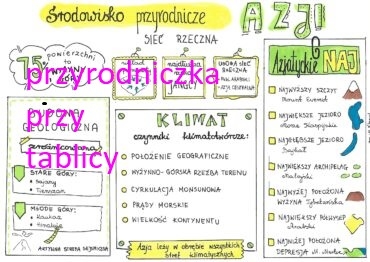 Środowisko przyrodnicze
AZJI
SIEĆ RZECZNA
75%
powierzchni
to
przyrodniczka
przy
tablicy
najdłuższa
JANGCY
UBOGA SIEĆ
RZECZNA
GEOLOGICZNA
zróżnicowana
STARE GÓRY:
Tienszan
MŁODE GÓRY:
Kaukaz
Himalaje
AKTYWNA STREFA SEJSMICZNA
KLIMAT
czynniki klimatotwórcze:
POŁOŻENIE GEOGRAFICZNE
WYŻYNNO-GÓRSKA RZEŹBA TERENU
CYRKULACJA MONSUNOWA
PRĄDY MORSKIE
WIELKOŚĆ KONTYNENTU
Azja leży w obrębie wszystkich
stref klimatycznych
Azjatyckie NAJ
NAJWYŻSZY SZCZYT
Mount Everest
NAJWIĘKSZE JEZIORO
Morze Kaspijskie
NAJGŁĘBSZE JEZIORO
Bajkał
NAJWIĘKSZY ARCHIPELAG
Malajski
NAJWYŻEJ POŁOŻONA
WYŻYNA Tybetańska
NAJWIĘKSZY PÓŁWYSEP
Arabski
NAJNIŻEJ POŁOŻONA
DEPRESJA